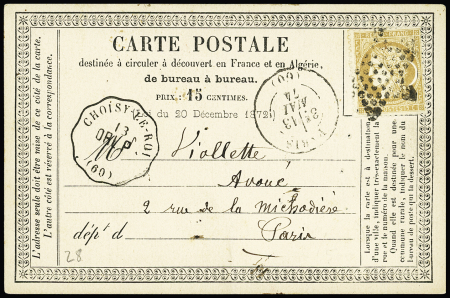 CARTE POSTALE
destinée à circuler à découvert en France et en Algérie,
de bureau à bureau.
PRIX: 15 CENTIMES.
Loi du 20 Décembre 1872
L'adresse seule doit être mise de ce côté de la carte.
L'autre côté est réservé à la correspondance.
CHOISY-LE-ROI
13
(60)
PARIS
MAI
74
(60)
15
Viollette
Avoué
2 rue de la Michodière
Paris
dépt d
28
Jusque la carte est à destination
d'une ville, indiquer très-exactement la
rue et le numéro de la maison.
Quand elle est destinée pour une
commune rurale, indiquer le nom du
bureau de poste qui la dessert.